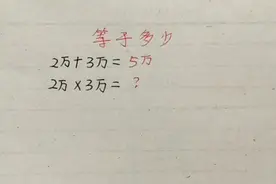 等于多少
2万+3万=5万
2万×3万=?